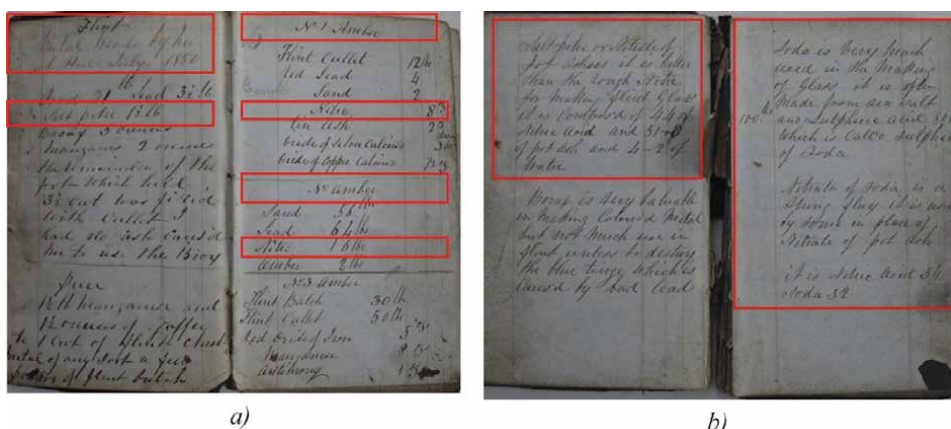 Flint
Metal Made by me
July, 1850
Sand 21 lb Lead 3½ lb
Salt petre 1½ lb
Borax 3 ounces
Mangans 2 ounces
the remainder of the
pot which held
3½ Cwt was filled
with Cullet I
had no ash caus'd
me to use the Borax
1½ lb Manganese and
12 ounces of
1 Cwt of
Metal of any sort a few
of flint batch
No 1 Amber
Flint Cullet 12 lb
Red Lead 4
Sand 2
Nitre 8
Tin Ash 2
Oxide of
Oxide of Copper
No Amber
Sand 56 lbs
Lead 64 lbs
Nitre 16 lbs
Amber 2 lbs
No 3 Amber
Flint Batch 30 lb
Flint Cullet 50 lb
Red Oxide of Iron 5
Manganese 8
Antimony 1
a)
Salt petre or Nitrate of
pot ashes it is better
than the rough Nitre
for making flint Glass
it is composed of 44 of
Nitric Acid and 51-8
of pot ash and 4-2 of
Water
Borax is very valuable
in Making Colored Metal
but not Much use in
flint unless to destroy
the blue tinge which is
caus'd by bad lead
Soda is Very Much
used in the Making
of Glass it is often
Made from Sea Salt
100 and Sulphuric Acid
Which is Call'd Sulphate
of Soda
Nitrate of Soda is a
Strong flux it is used
by some in place of
Nitrate of pot ash
it is Nitric Acid
Soda 32
b)